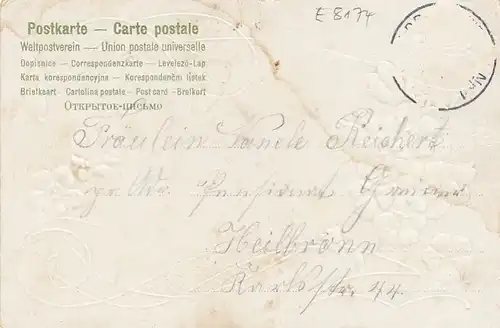 E 8174
Postkarte — Carte postale
Weltpostverein — Union postale universelle
Dopisnice — Correspondenzkarte — Levelezö-Lap
Karta korespondencyjna — Korespondenčni listek
Briefkaart — Cartolina postale — Postcard — Brefkort
Открытое-письмо
Fräulein Reichert
Pensionat
Heilbronn
Karlstr. 44.